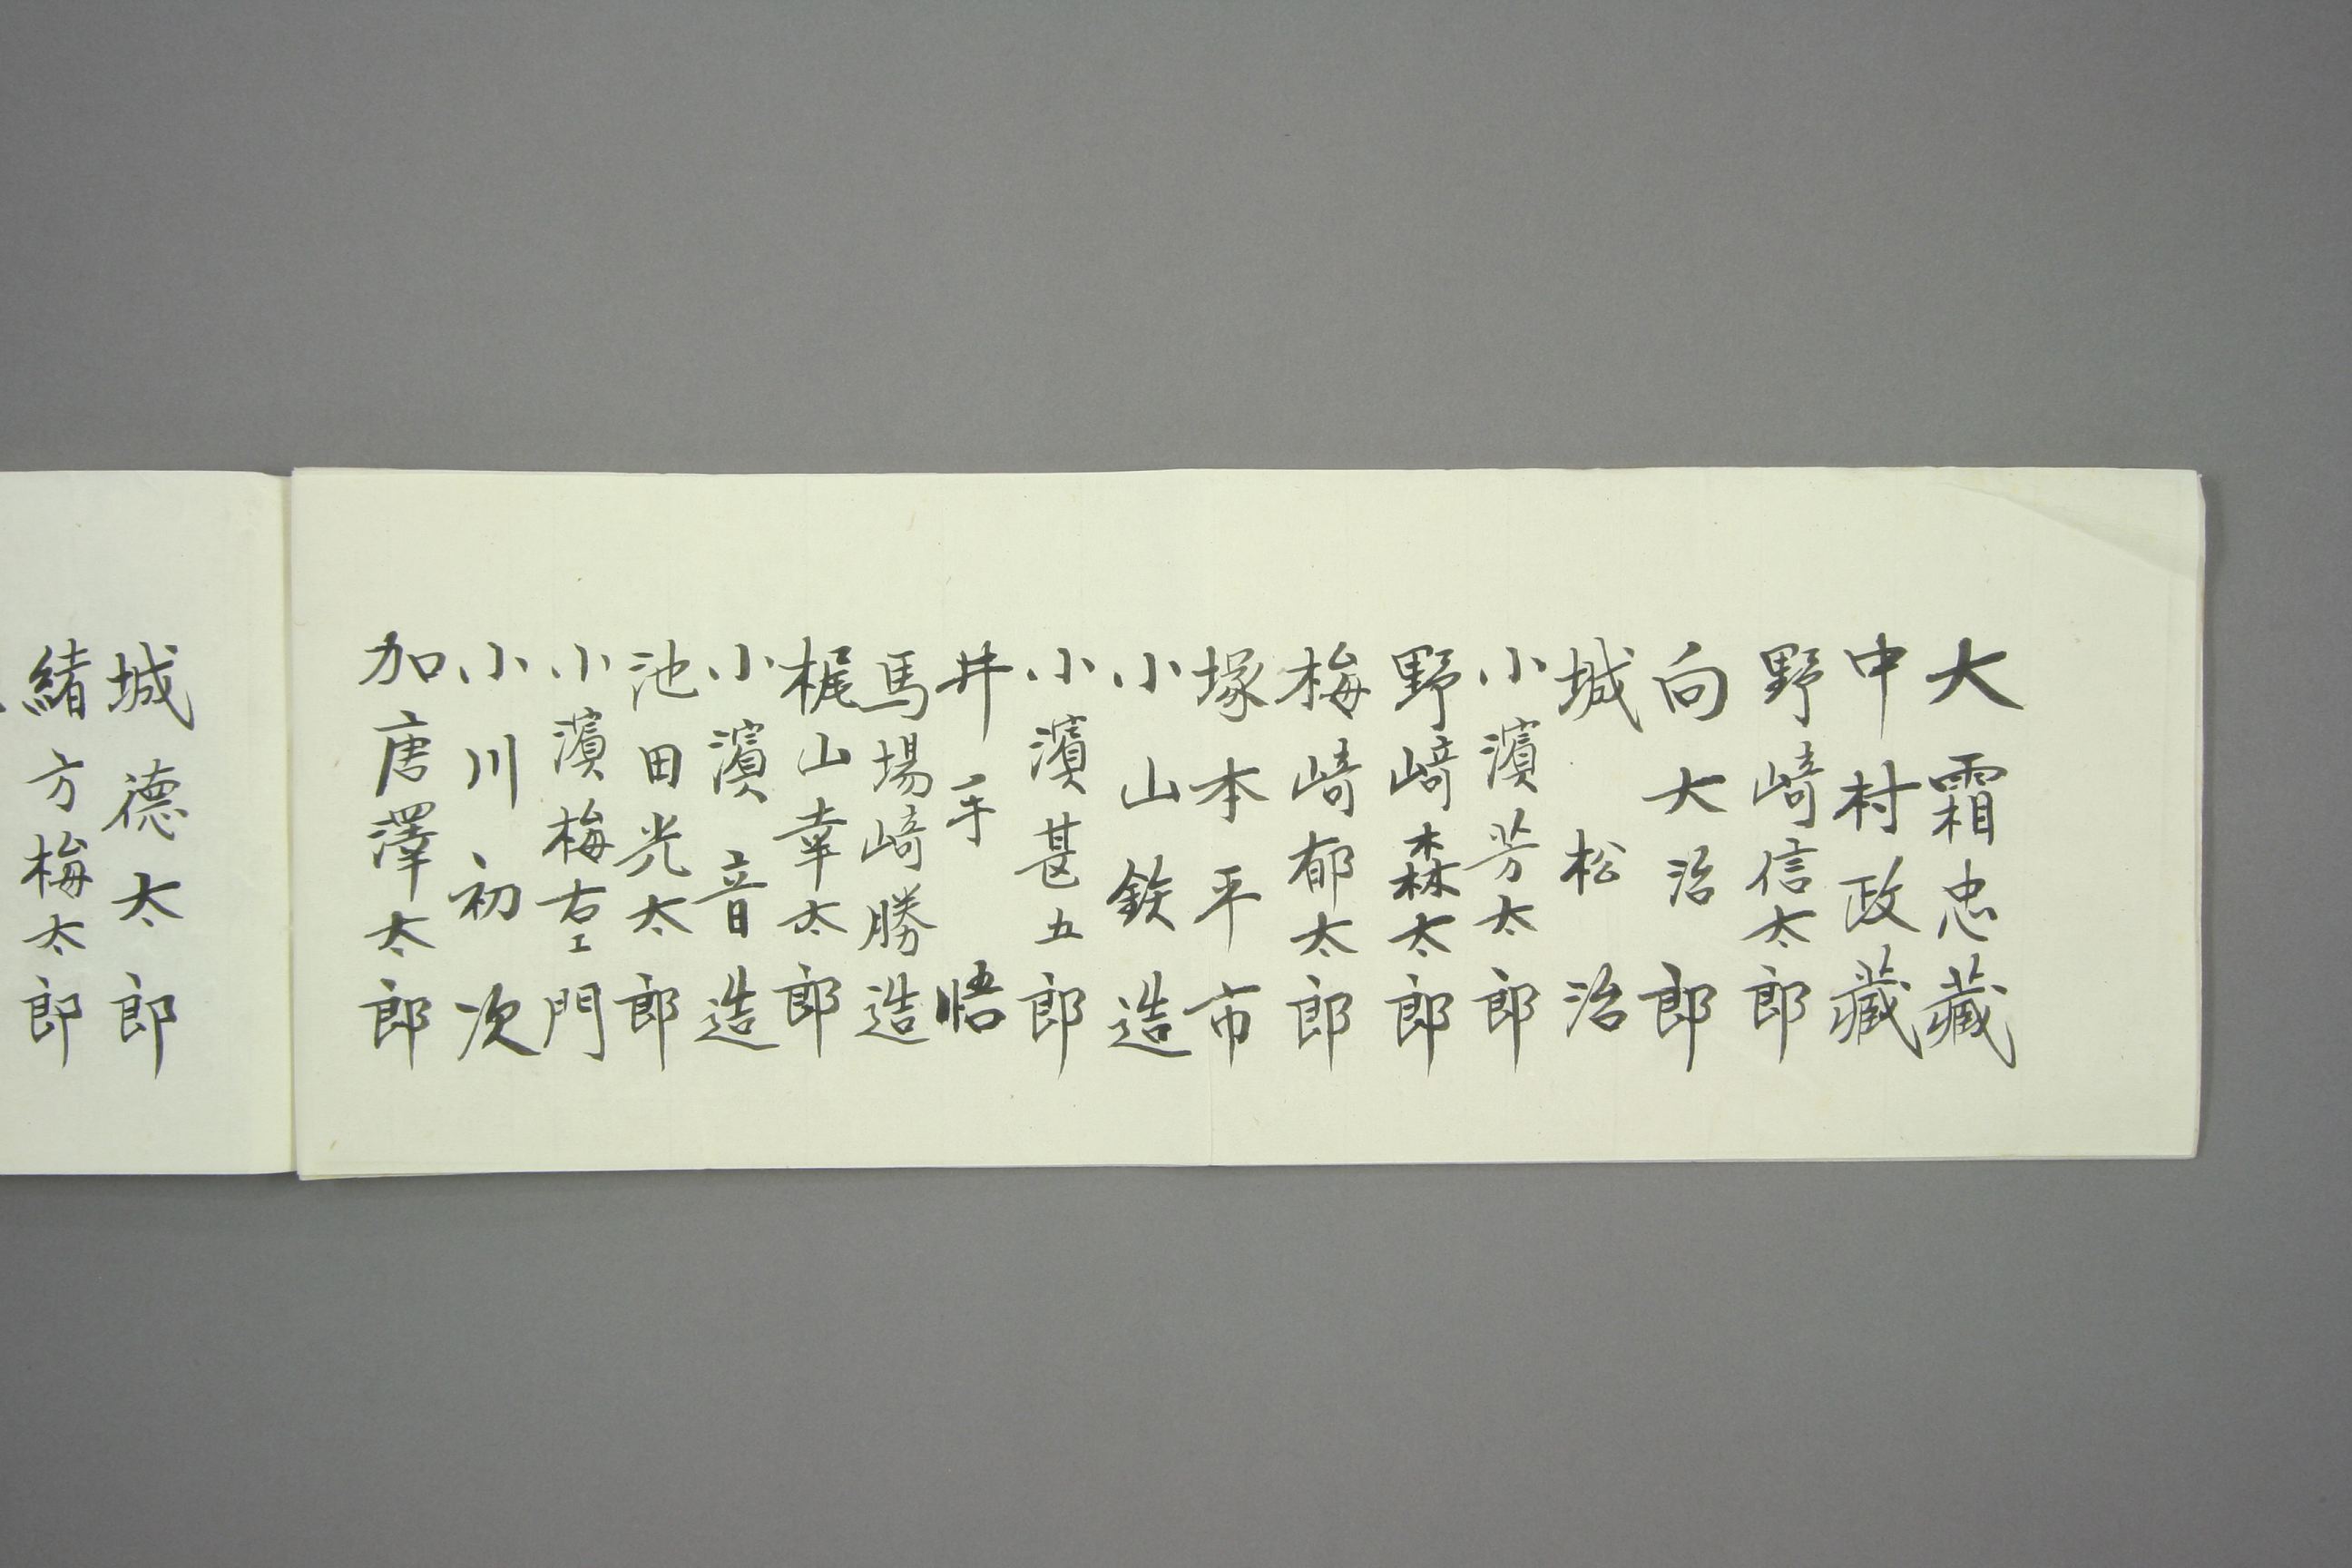 大霜忠藏
中村政藏
野﨑信太郎
向大治郎
城松治
小濱芳太郎
野﨑森太郎
梅﨑郁太郎
塚本平市
小山鉄造
小濱甚五郎
井手悟
馬場﨑勝造
梶山幸太郎
小濱音造
池田光太郎
小濱梅右エ門
小川初次
加唐澤太郎
城德太郎
緒方梅太郎